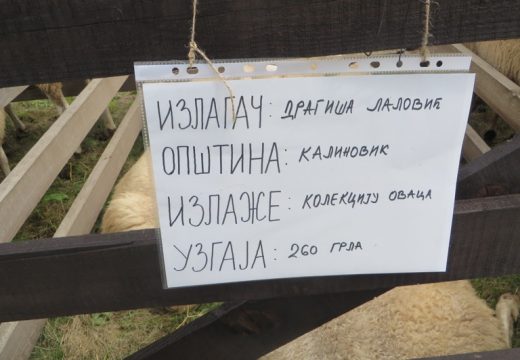 ИЗЛАГАЧ: ДРАГИША ЛАЛОВИЋ
ОПШТИНА: КАЛИНОВИК
ИЗЛАЖЕ: КОЛЕКЦИЈУ ОВАЦА
УЗГАЈА: 260 ГРЛА